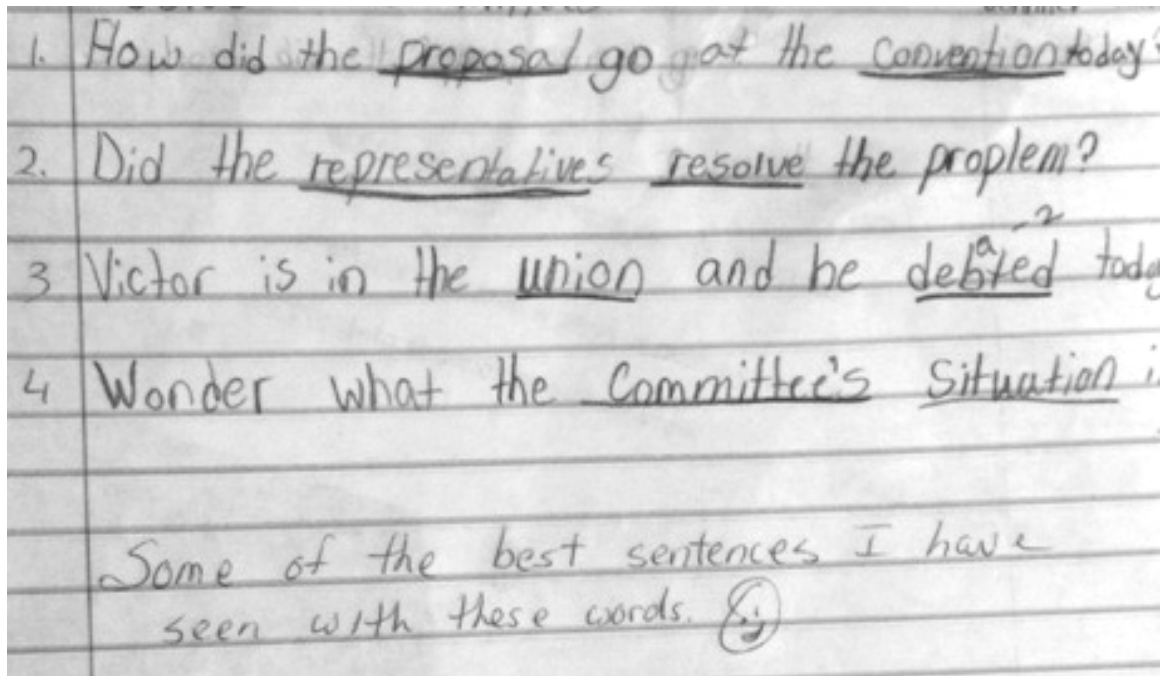 1. How did the proposal go at the Convention today?
2. Did the representatives resolve the proplem?
-2
a
3 Victor is in the union and he debted
4 Wonder what the Committee's Situation
Some of the best sentences I have
seen with these words.